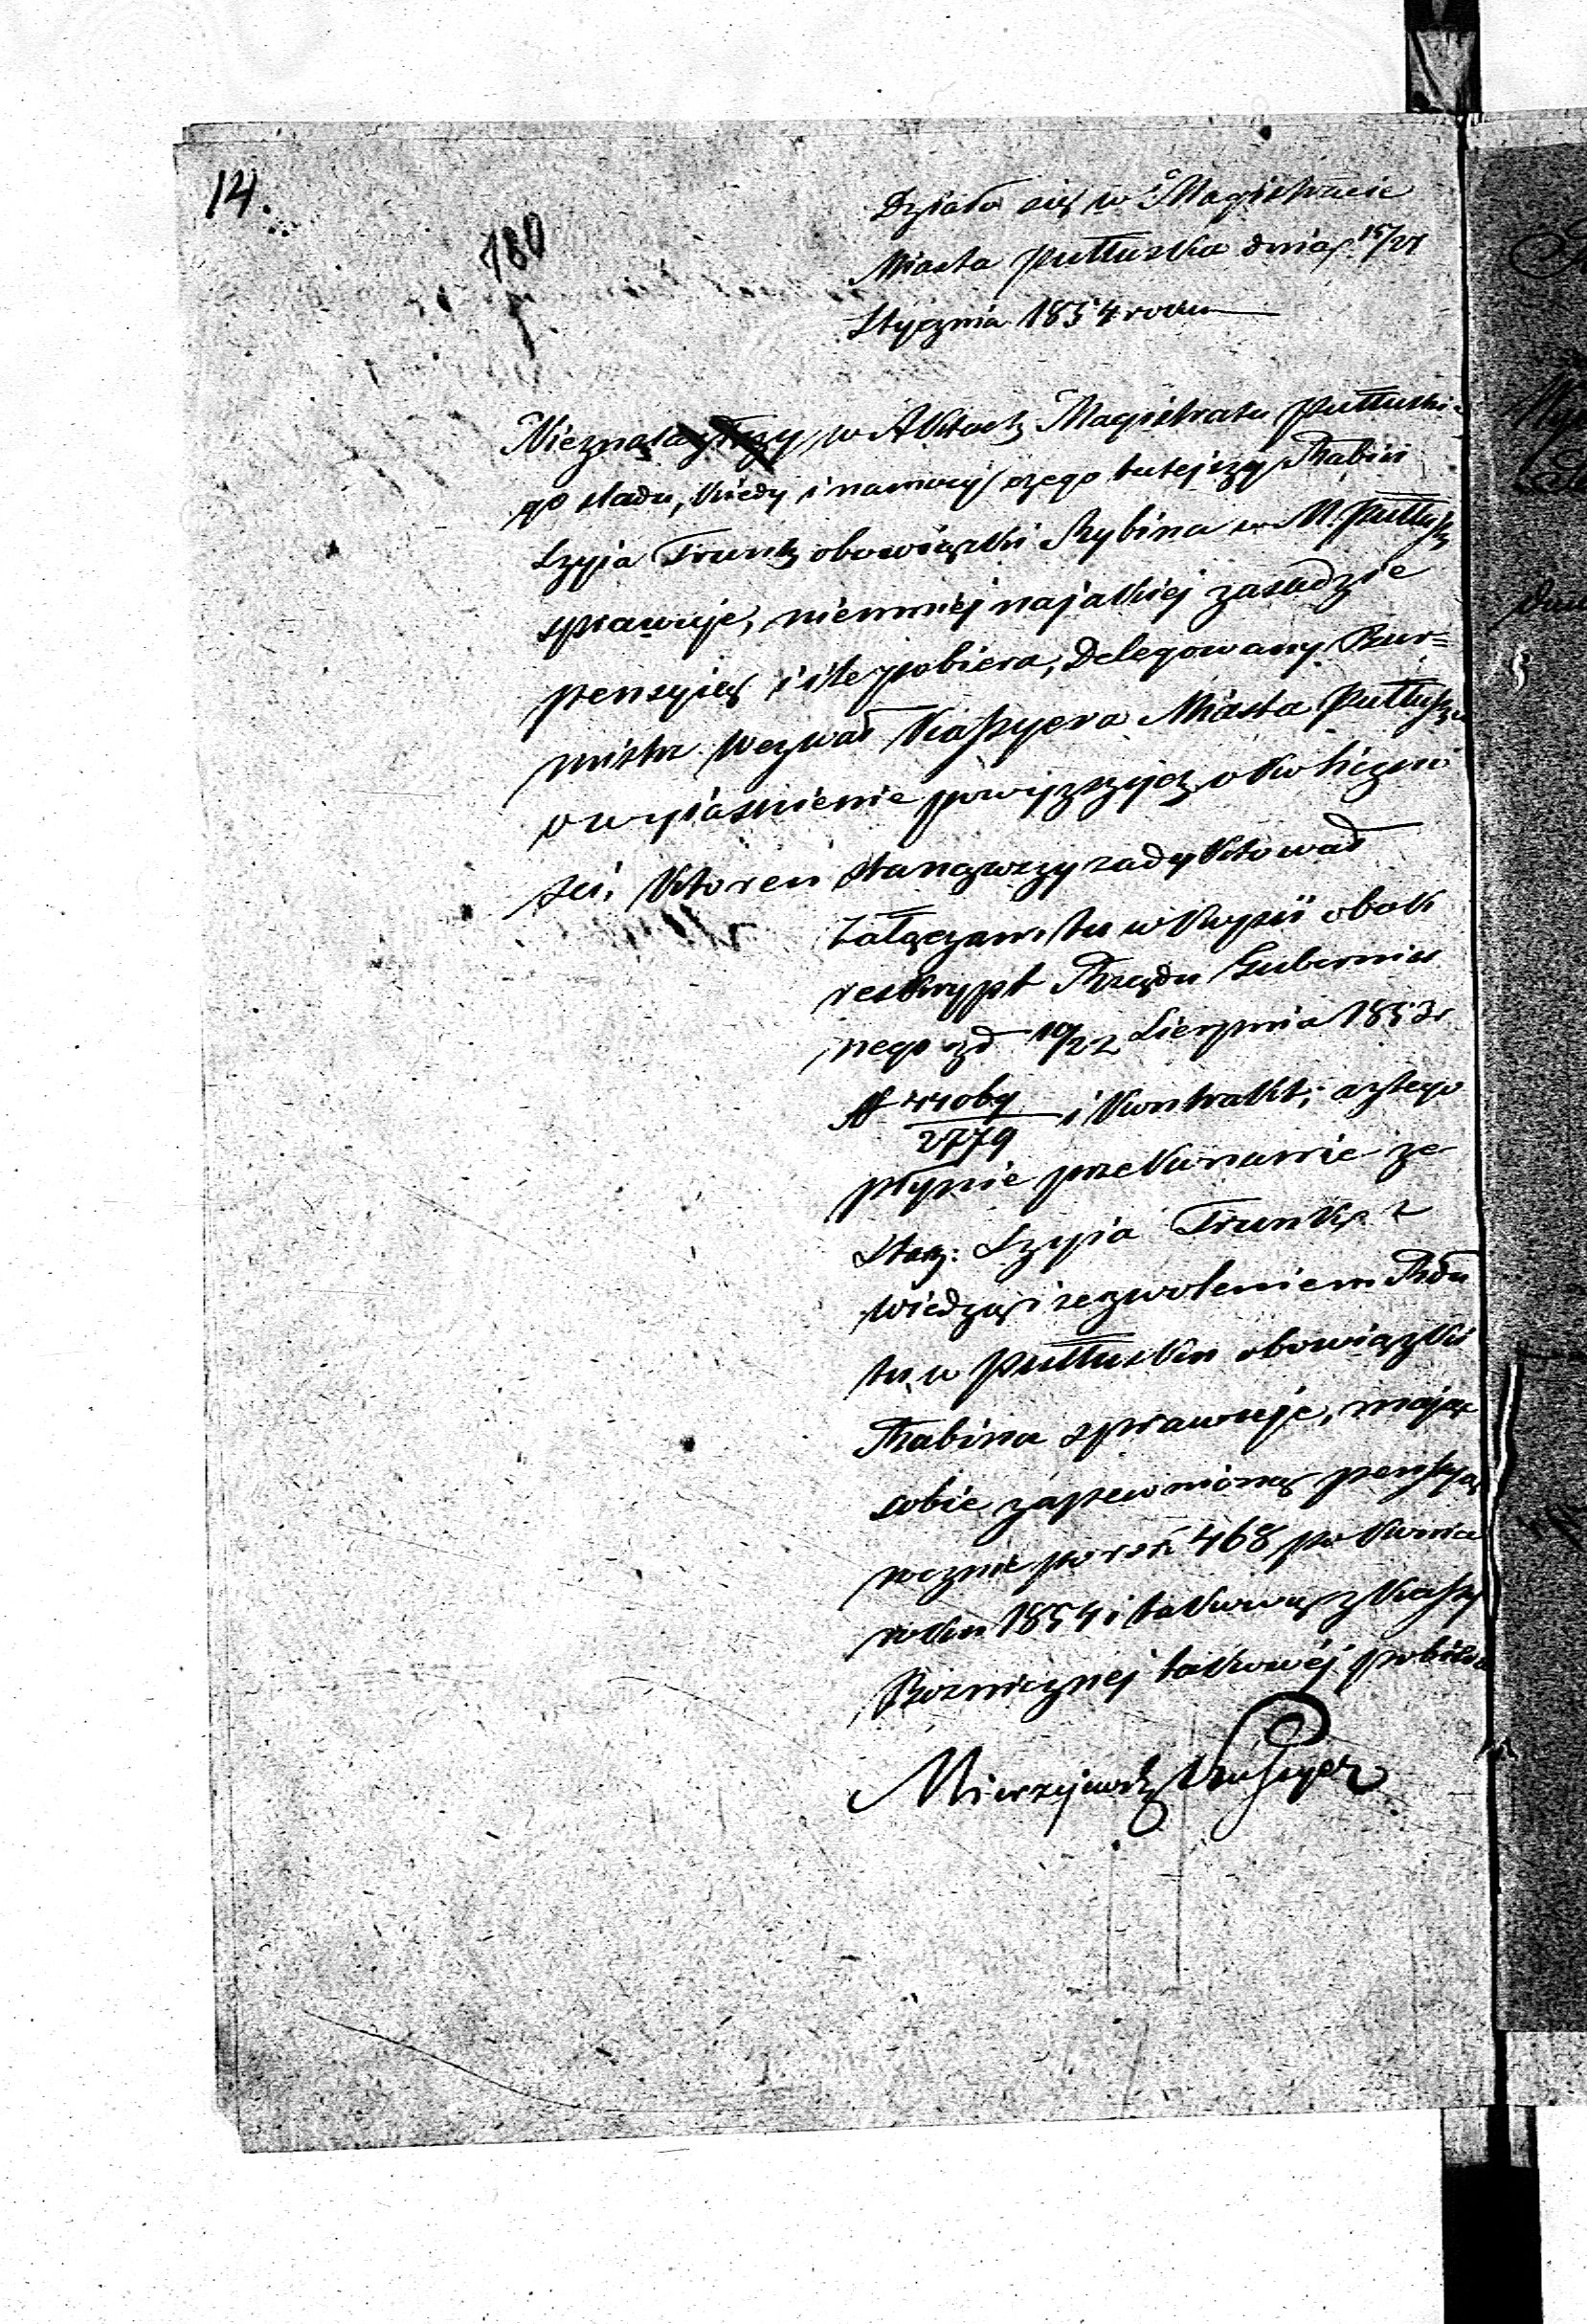 14.
180
Działo się w Magistracie
Miasta Pułtuska dnia 15/27
Stycznia 1854 roku
w Aktach Magistratu Pułtuski-
go śladu, kiedy i na mocy czego tutejszy Rabin
Szyja Trunk obowiązki Rybina w M. Pułtusk
sprawuje, niemniej na jakiej zasadzie
pensyią i ile pobiera, Delegowany Bur=
mistrz wezwał Kassyera Miasta Pułtuska
o wyiasnienie powyższych okoliczno
sci, ktoren stanąwszy zadyktował
Załączam tu w kopii obok
reskrypt Rządu Gubernial
nego z d 10/22 Sierpnia 1853 r
N 44069/2779 i kontrakt; a z tego
płynie przekonanie ze
Starz: Szyia Trunk z
wiedzą i zezwoleniem Rdu
tu w Pułtusku obowiązki
Rabina sprawuje, mając
sobie zapewnioną pensyą
rocznie po rsr. 468 po konice
roku 1854 i takową z Kassy
Boznicznej takowéj pobiera
Mierzejewski Kassyer